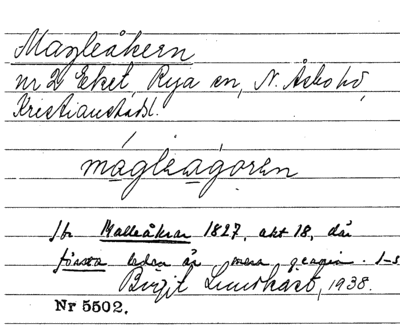 Magleåkern
nr 2 Eket, Rya sn, N. Åsbo hd,
Kristianstads l.
mágleàgoren
Jfr Malleåkrar 1827, akt 18, där
första leden är mera
Birgit Lundhast, 1938.
Nr 5502.